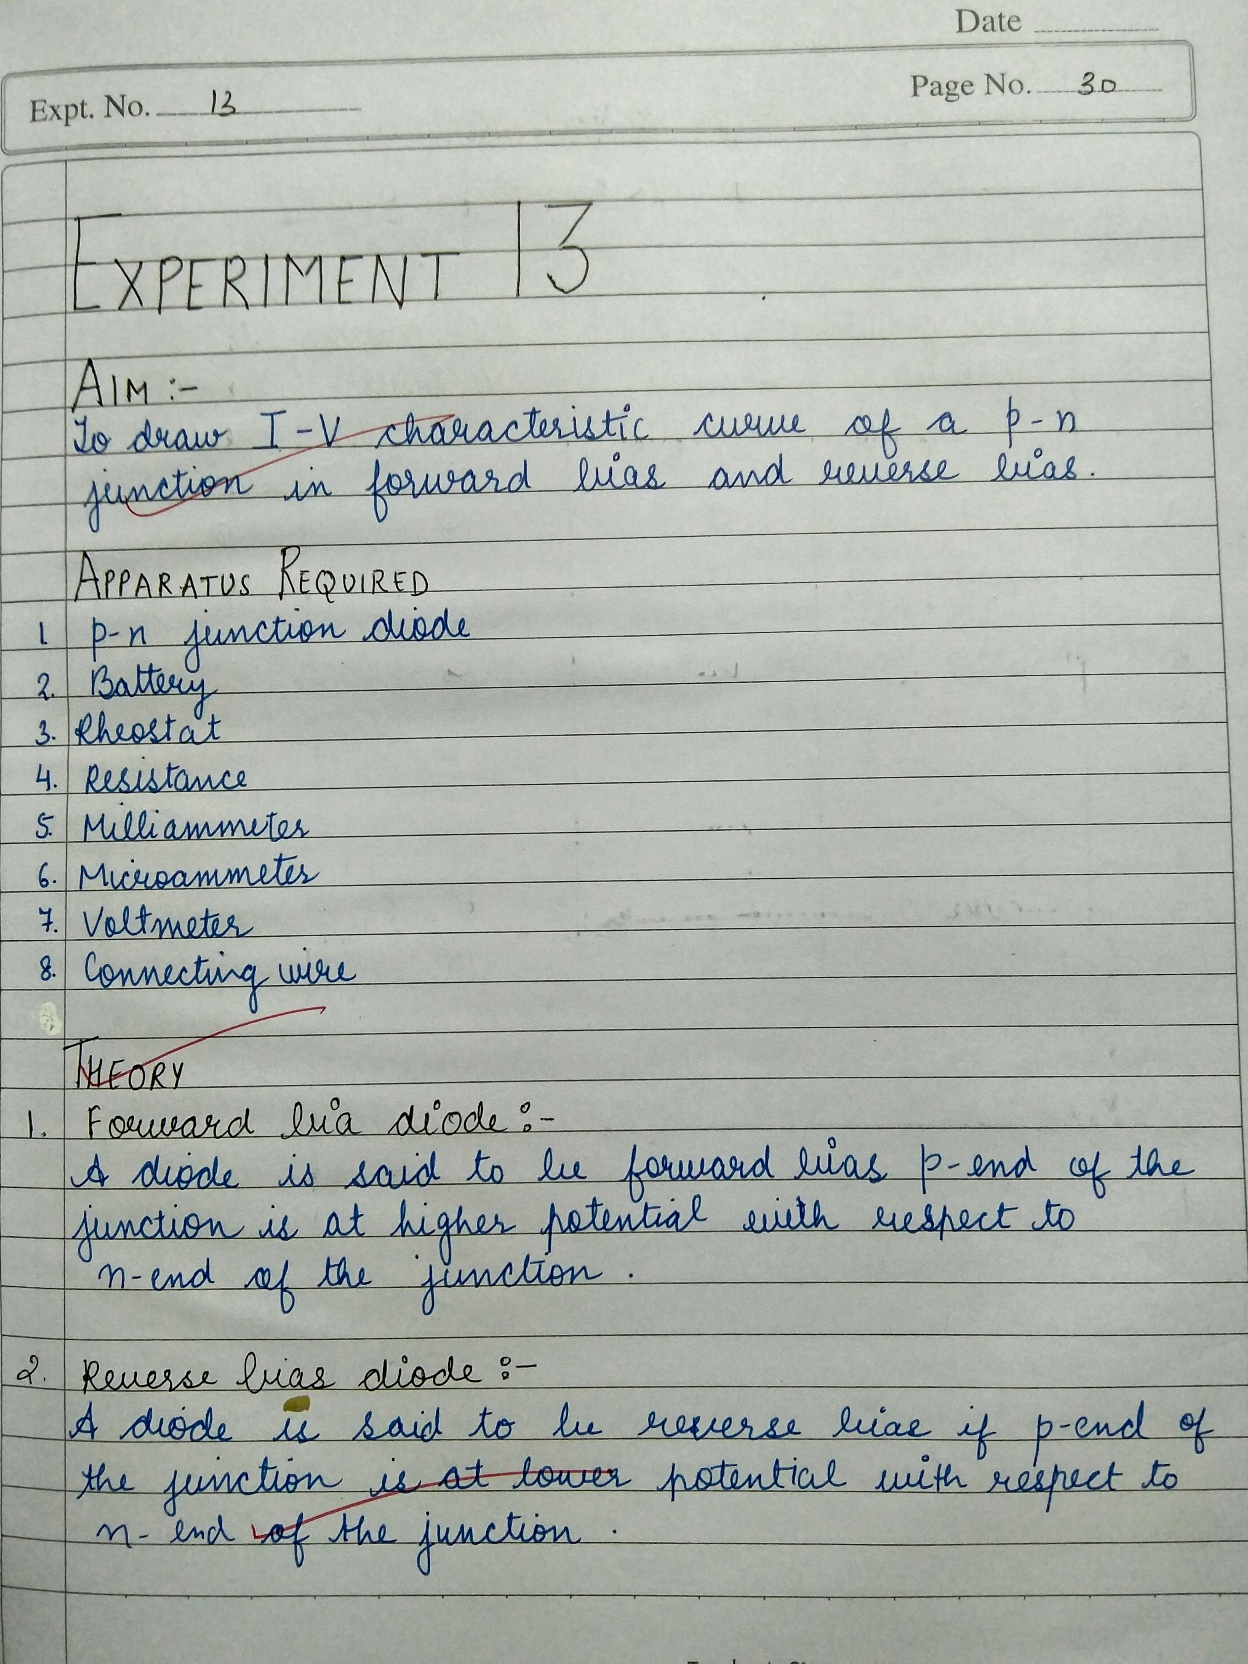 Date
Expt. No. 13
Page No. 30
EXPERIMENT 13
AIM :-
To draw I-V characteristic curve of a p-n
junction in forward bias and reverse bias.
APPARATUS REQUIRED
1 p-n junction diode
2. Battery
3. Rheostat
4. Resistance
5. Milliammeter
6. Microammeter
7. Voltmeter
8. Connecting wire
THEORY
1. Forward bia diode :-
A diode is said to be forward bias p-end of the
junction is at higher potential with respect to
n-end of the junction .
2. Reverse bias diode :-
A diode is said to be reverse bias if p-end of
the junction is at lower potential with respect to
n-end of the junction .